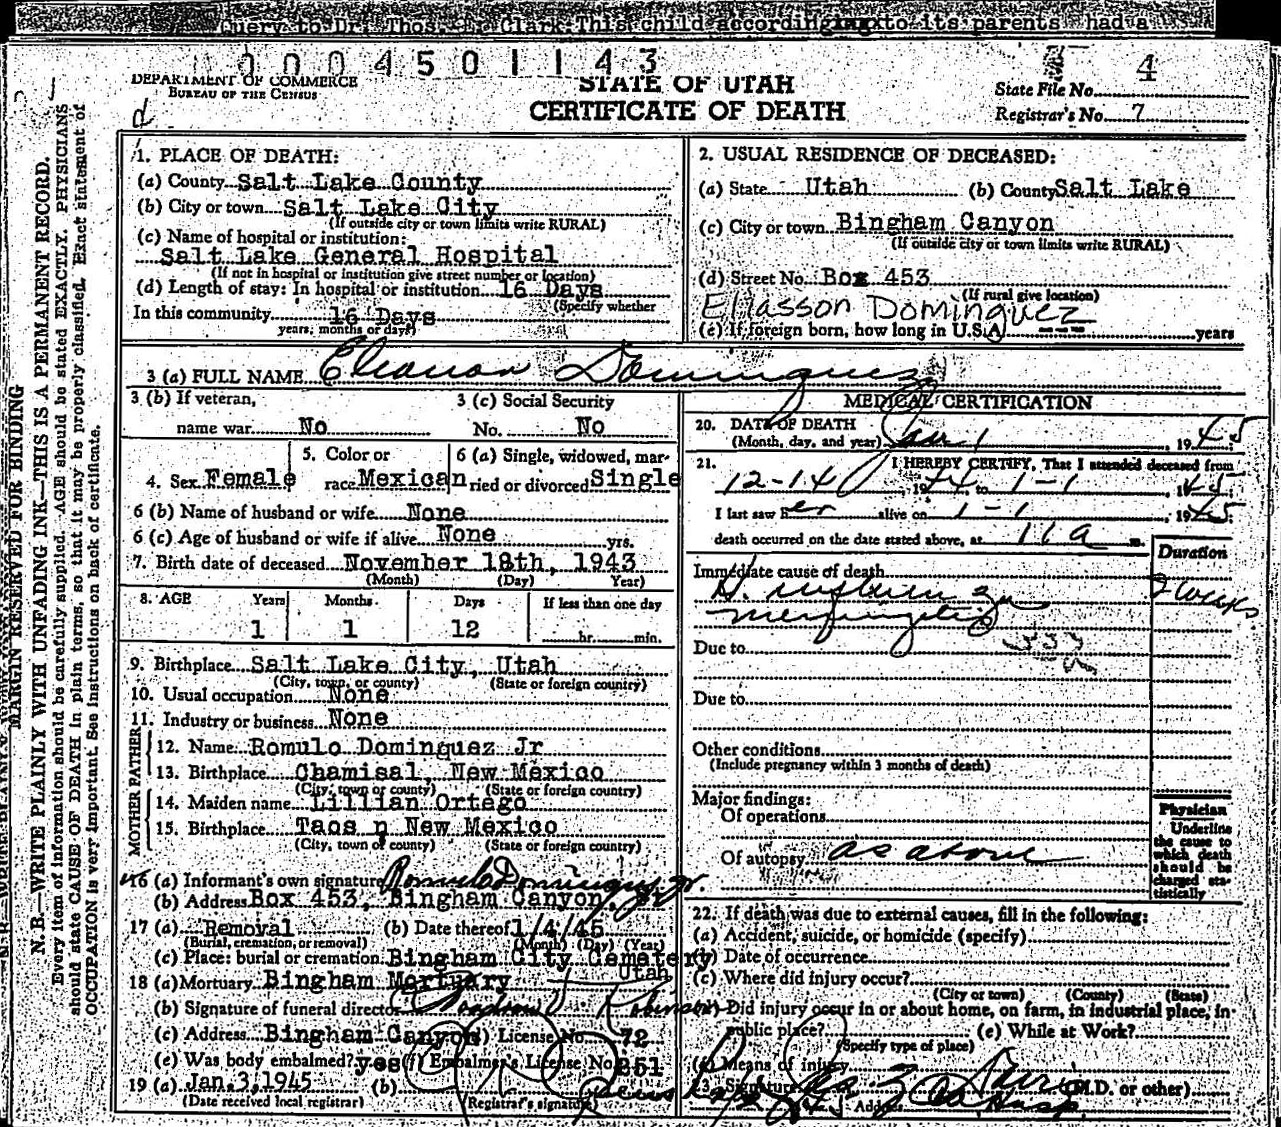 Query to Dr. Thos. Clark-This child according to its parents had a
0004501143
DEPARTMENT OF COMMERCE
BUREAU OF THE CENSUS
STATE OF UTAH
CERTIFICATE OF DEATH
4
State File No.
Registrar's No. 7
d
MARGIN RESERVED FOR BINDING
N. B.—WRITE PLAINLY WITH UNFADING INK—THIS IS A PERMANENT RECORD.
Every item of information should be carefully supplied. AGE should be stated EXACTLY. PHYSICIANS
should state CAUSE OF DEATH in plain terms, so that it may be properly classified. Exact statement of
OCCUPATION is very important. See instructions on back of certificate.
1. PLACE OF DEATH:
(a) County Salt Lake County
(b) City or town Salt Lake City
(If outside city or town limits write RURAL)
(c) Name of hospital or institution:
Salt Lake General Hospital
(If not in hospital or institution give street number or location)
(d) Length of stay: In hospital or institution 16 Days
(Specify whether
In this community 16 Days
years, months or days)
2. USUAL RESIDENCE OF DECEASED:
(a) State Utah (b) County Salt Lake
(c) City or town Bingham Canyon
(If outside city or town limits write RURAL)
(d) Street No. Box 453
(If rural give location)
Eliasson Dominguez
(e) If foreign born, how long in U.S.A. --- years
3 (a) FULL NAME Eleanor Dominguez
3 (b) If veteran, name war No
3 (c) Social Security No. No
4. Sex Female
5. Color or race Mexican
6 (a) Single, widowed, married or divorced Single
6 (b) Name of husband or wife None
6 (c) Age of husband or wife if alive None yrs.
7. Birth date of deceased November 18th, 1943
(Month) (Day) Year)
8. AGE Years Months Days If less than one day
1 1 12 hr. min.
9. Birthplace Salt Lake City, Utah
(City, town, or county) (State or foreign country)
10. Usual occupation None
11. Industry or business None
FATHER
12. Name Romulo Dominguez Jr
13. Birthplace Chamisal, New Mexico
(City, town or county) (State or foreign country)
MOTHER
14. Maiden name Lillian Ortego
15. Birthplace Taos n New Mexico
(City, town or county) (State or foreign country)
16 (a) Informant's own signature Romulo Dominguez Jr.
(b) Address Box 453, Bingham Canyon,
17 (a) Removal (b) Date thereof 1/4/45
(Burial, cremation, or removal) (Month) (Day) (Year)
(c) Place: burial or cremation Bingham City Cemetery
Utah
18 (a) Mortuary Bingham Mortuary
(b) Signature of funeral director Robinson
(c) Address Bingham Canyon (d) License No. 72
(e) Was body embalmed? yes (f) Embalmer's License No. 251
19 (a) Jan. 3, 1945 (b)
(Date received local registrar) (Registrar's signature)
MEDICAL CERTIFICATION
20. DATE OF DEATH
(Month, day, and year) Jan 1, 1945
21. I HEREBY CERTIFY, That I attended deceased from
12-14, 1944, to 1-1, 1945
I last saw her alive on 1-1, 1945
death occurred on the date stated above, at 11 a m.
Duration
Immediate cause of death
H. influenza 2 weeks
meningitis
Due to
Due to
Other conditions
(Include pregnancy within 3 months of death)
Major findings:
Of operations
Of autopsy as above
Physician
Underline
the cause to
which death
should be
charged sta-
tistically
22. If death was due to external causes, fill in the following:
(a) Accident, suicide, or homicide (specify)
(b) Date of occurrence
(c) Where did injury occur?
(City or town) (County) (State)
Did injury occur in or about home, on farm, in industrial place, in
public place?
(Specify type of place)
(e) While at Work?
(f) Means of injury
23. Signature (M.D. or other)
Address Hosp.